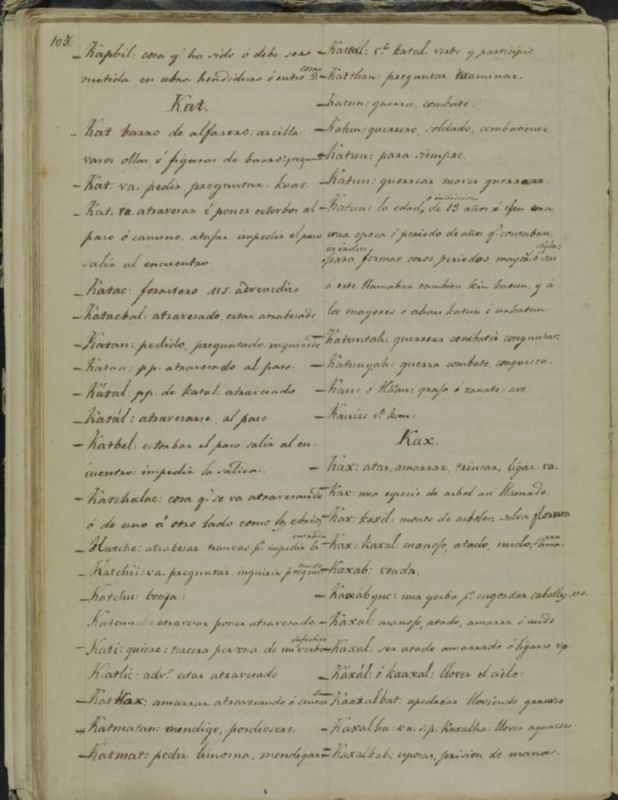 105.
- Kapbil: cosa q.e ha sido ó debe ser
metida en abra hendidura ó entre 2. cosas
Kat.
- Kat barro de alfarero: arcilla:
varos ollas ó figuras de barro: pregunt
- Kat. va. pedir preguntar.
- Kat. va. atravesar ó poner estorbos al
paso ó camino, atajar impedir el paso
salir al encuentro.
- Katac: forastero ms. advenedizo
- Katacbal: atravesado, estar atrabesado
- Katan: pedido, preguntado
- Katan: pp. atravesado al paso.
- Kätal pp. de Katal: atravesado
- Katál: atravesarse, al paso
- Katbel: estorbar el paso salir al en-
cuentro: impedir la salida.
- Katchalac: cosa q.e se va atravesando
ó de uno á otro lado como los ebrios
- Katche: atrabesar trancas p.a impedir la entrada
- Katchii: va. preguntar inquirir
- Katchu: bonja:
- Katcun: atravesar poner atravesado.
- Kati: quiere: tercera persona de un verbo defectivo
- Katlic: adv.o estar atravesado
- Katkax: amarrar atravesando ó
- Katmatan: mendigo, pordiosero.
- Katmat: pedir limosna, mendigar
- Katál: v.e katal verbo y participio
- Katthan: preguntar examinar.
- Katun: guerra, combate:
- Katun: guerrero, soldado, combatiente
- Katun: para siempre.
- Katun: guerrear mover guerra
- Katun: la edad, ó indiccion de 13 años ó
una epoca ó periodo de años q.e contaban
para formar otros periodos mayor.s ó siglos:
a este llamaban tambien kin katun, y a
los mayores ó ahau katun ó
- Katuntah: guerrear combatir conquistar.
- Katunyah: guerra combate, conquista.
- Kau: ó Kkau: grajo ó zanate: ave.
- Kauiz: v.e kau:
Kax.
- Kax: atar, amarrar, trincar, ligar va.
- Kax: una especie de arbol asi llamado.
- Kax: kaxil: monte de arboles, selva floresta
- Kax: kaxal: manojo, atado, nudo,
- Kaxab: venda.
- Kaxabyuc: una yerba p.a engordar caballos. ms.
- Kaxal: manojo, atado, amarra ó nudo
- Kaxal: ser atado amarrado ó ligarse vp.
- Käxál: ó kaaxal: llover el cielo:
- Kaaxalbat: apedrear lloviendo granizo
- Kaxalha: v.n. s.p. Kaxalha: llover aguacero
- Kaxalkab: esposas, prision de manos.